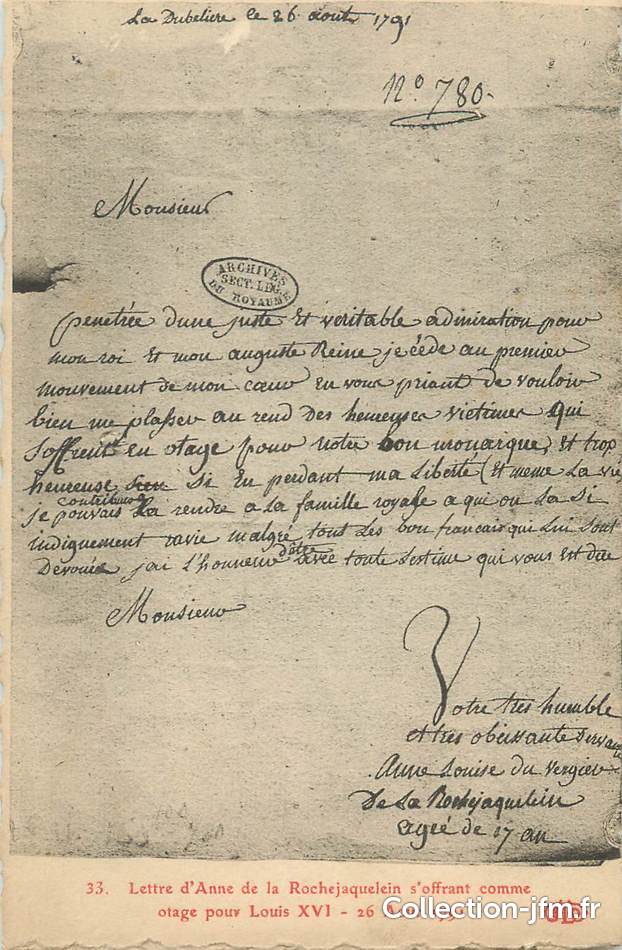 La Dubeliere le 26 août 1791
n° 780.
Monsieur
ARCHIVES
SECT. LEG.
DU ROYAUME
penetrée dune juste Et veritable admiration pour
mon roi Et mon auguste Reine je cède au premier
mouvement de mon cœur En vous priant de vouloir
bien me plasser au rend des heureuses victimes qui
soffrent en otage pour notre bon monarque, Et trop
heureuse si En perdant ma Liberté (Et meme La vie
contribuer
je pouvais La rendre a La famille royale a qui on La si
indignement ravie malgré tout Les bon francais qui Lui sont
d'être
Devoués jai L'honneur avec toute Lestime qui vous est due
Monsieur
Votre tres humble
et tres obeissante servante
Anne Louise du Vergier
De La Rochejaquelein
agée de 17 an
33. Lettre d'Anne de la Rochejaquelein s'offrant comme
otage pour Louis XVI - 26
Collection-jfm.fr